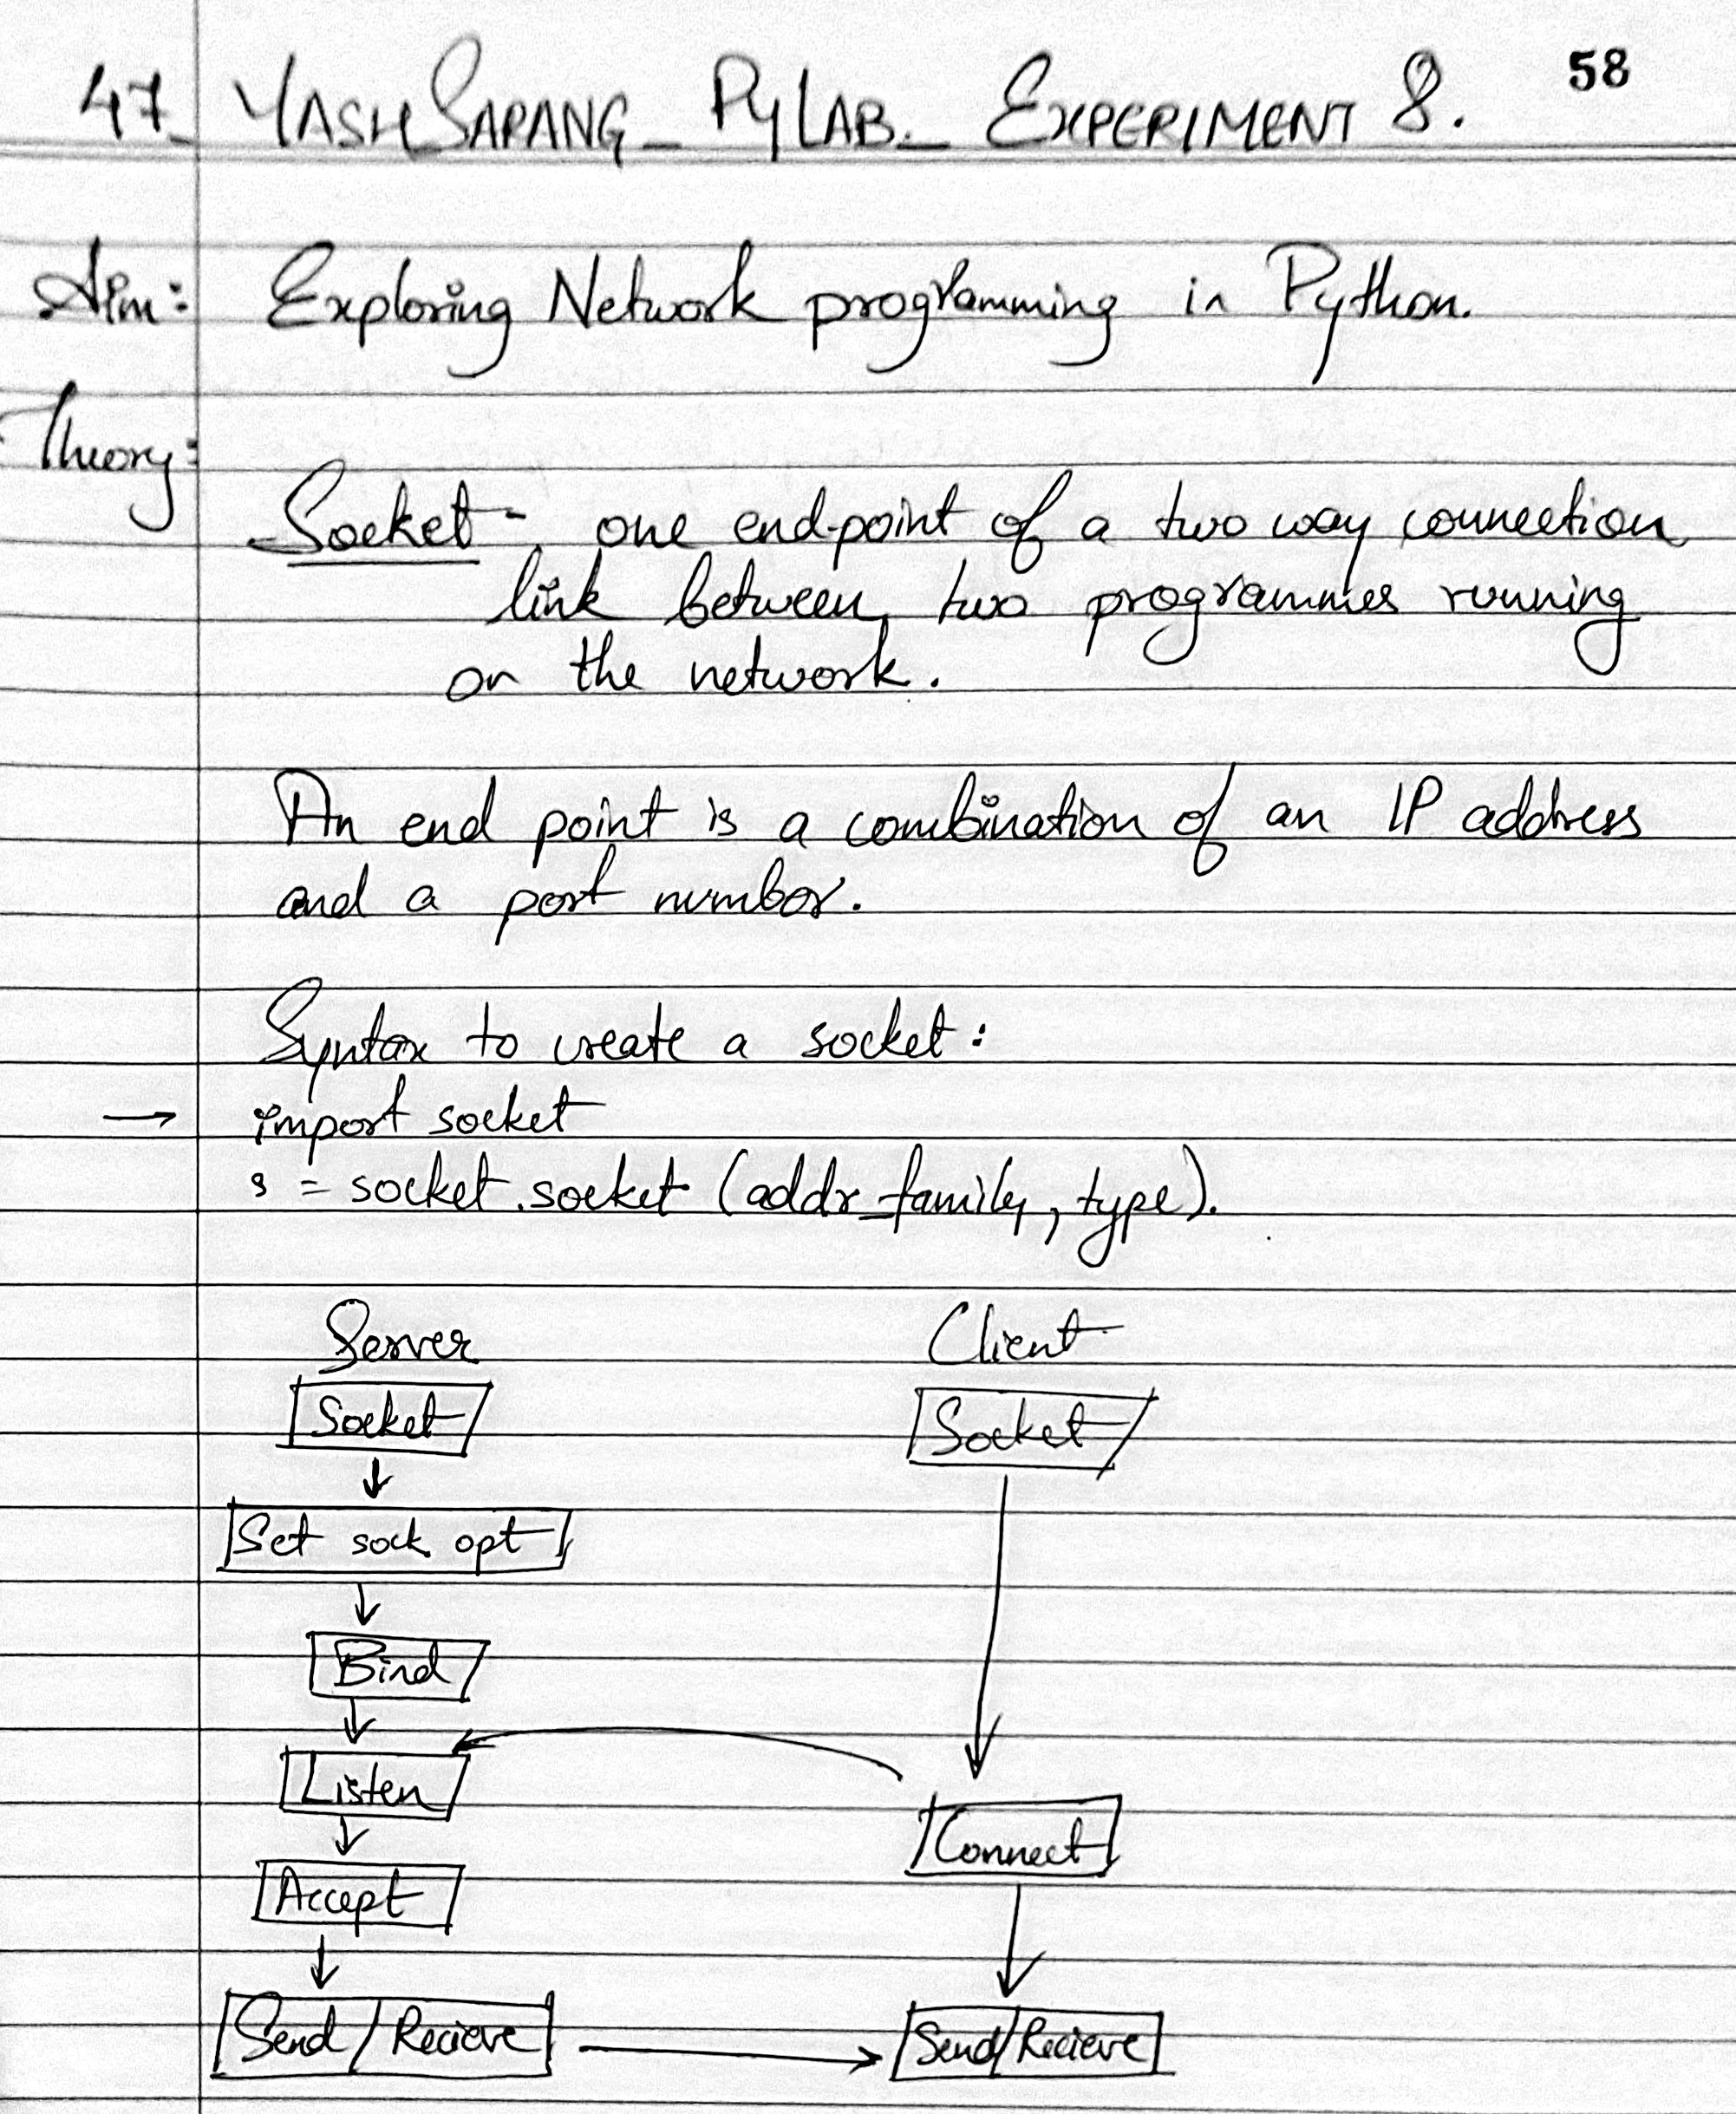 58
47_YASH SAPANG_PYLAB_EXPERIMENT 8.
Aim: Exploring Network programming in Python.
Theory:
Socket - one endpoint of a two way connection
link between two programmes running
on the network.
An end point is a combination of an IP address
and a port number.
Syntax to create a socket:
→ import socket
s = socket.socket (addr_family, type).
Server Client
Socket Socket
↓
Set sock opt
↓
Bind
↓
Listen
↓
Connect
Accept
↓
Send / Recieve → Send/Recieve